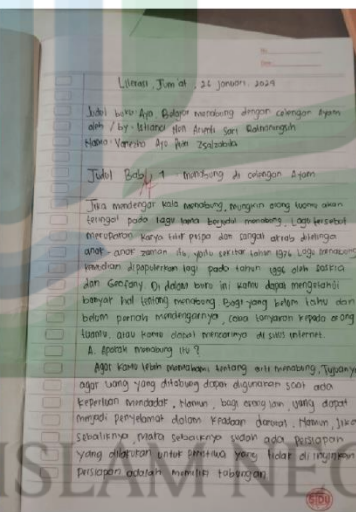 Literasi, Jum'at, 26 januari, 2024
Judul buku: Ayo Belajar menabung dengan celengan Ayam
oleh / by: Istiana Non Sari Ratnaningsih
Nama: Vanesha Ayu Putri Zsalzabila
Judul Bab 1 menabung di celengan Ayam
Jika mendengar kata menabung, mungkin orang tuamu akan
teringat pada lagu lama berjudul menabung. Lagu tersebut
merupakan karya titiek puspa dan sangat akrab ditelinga
anak-anak zaman itu, yaitu sekitar tahun 1976. Lagu menabung
kemudian dipopulerkan lagi pada tahun 1996 oleh Saskia
dan Geofany. Di dalam buku ini kamu dapat mengetahui
banyak hal tentang menabung. Bagi yang belum tahu dan
belum pernah mendengarnya, coba tanyakan kepada orang
tuamu, atau kamu dapat mencarinya di situs internet.
A. Apakah menabung itu?
Agar kamu lebih memahami tentang arti menabung, Tujuannya
agar uang yang ditabung dapat digunakan saat ada
keperluan mendadak, Namun, bagi orang lain, uang dapat
menjadi penyelamat dalam keadaan darurat. Namun, jika
sebaliknya, maka sebaiknya sudah ada persiapan
yang dilakukan untuk peristiwa yang tidak di inginkan
persiapan adalah memiliki tabungan
ISLAM NEG
SIDU